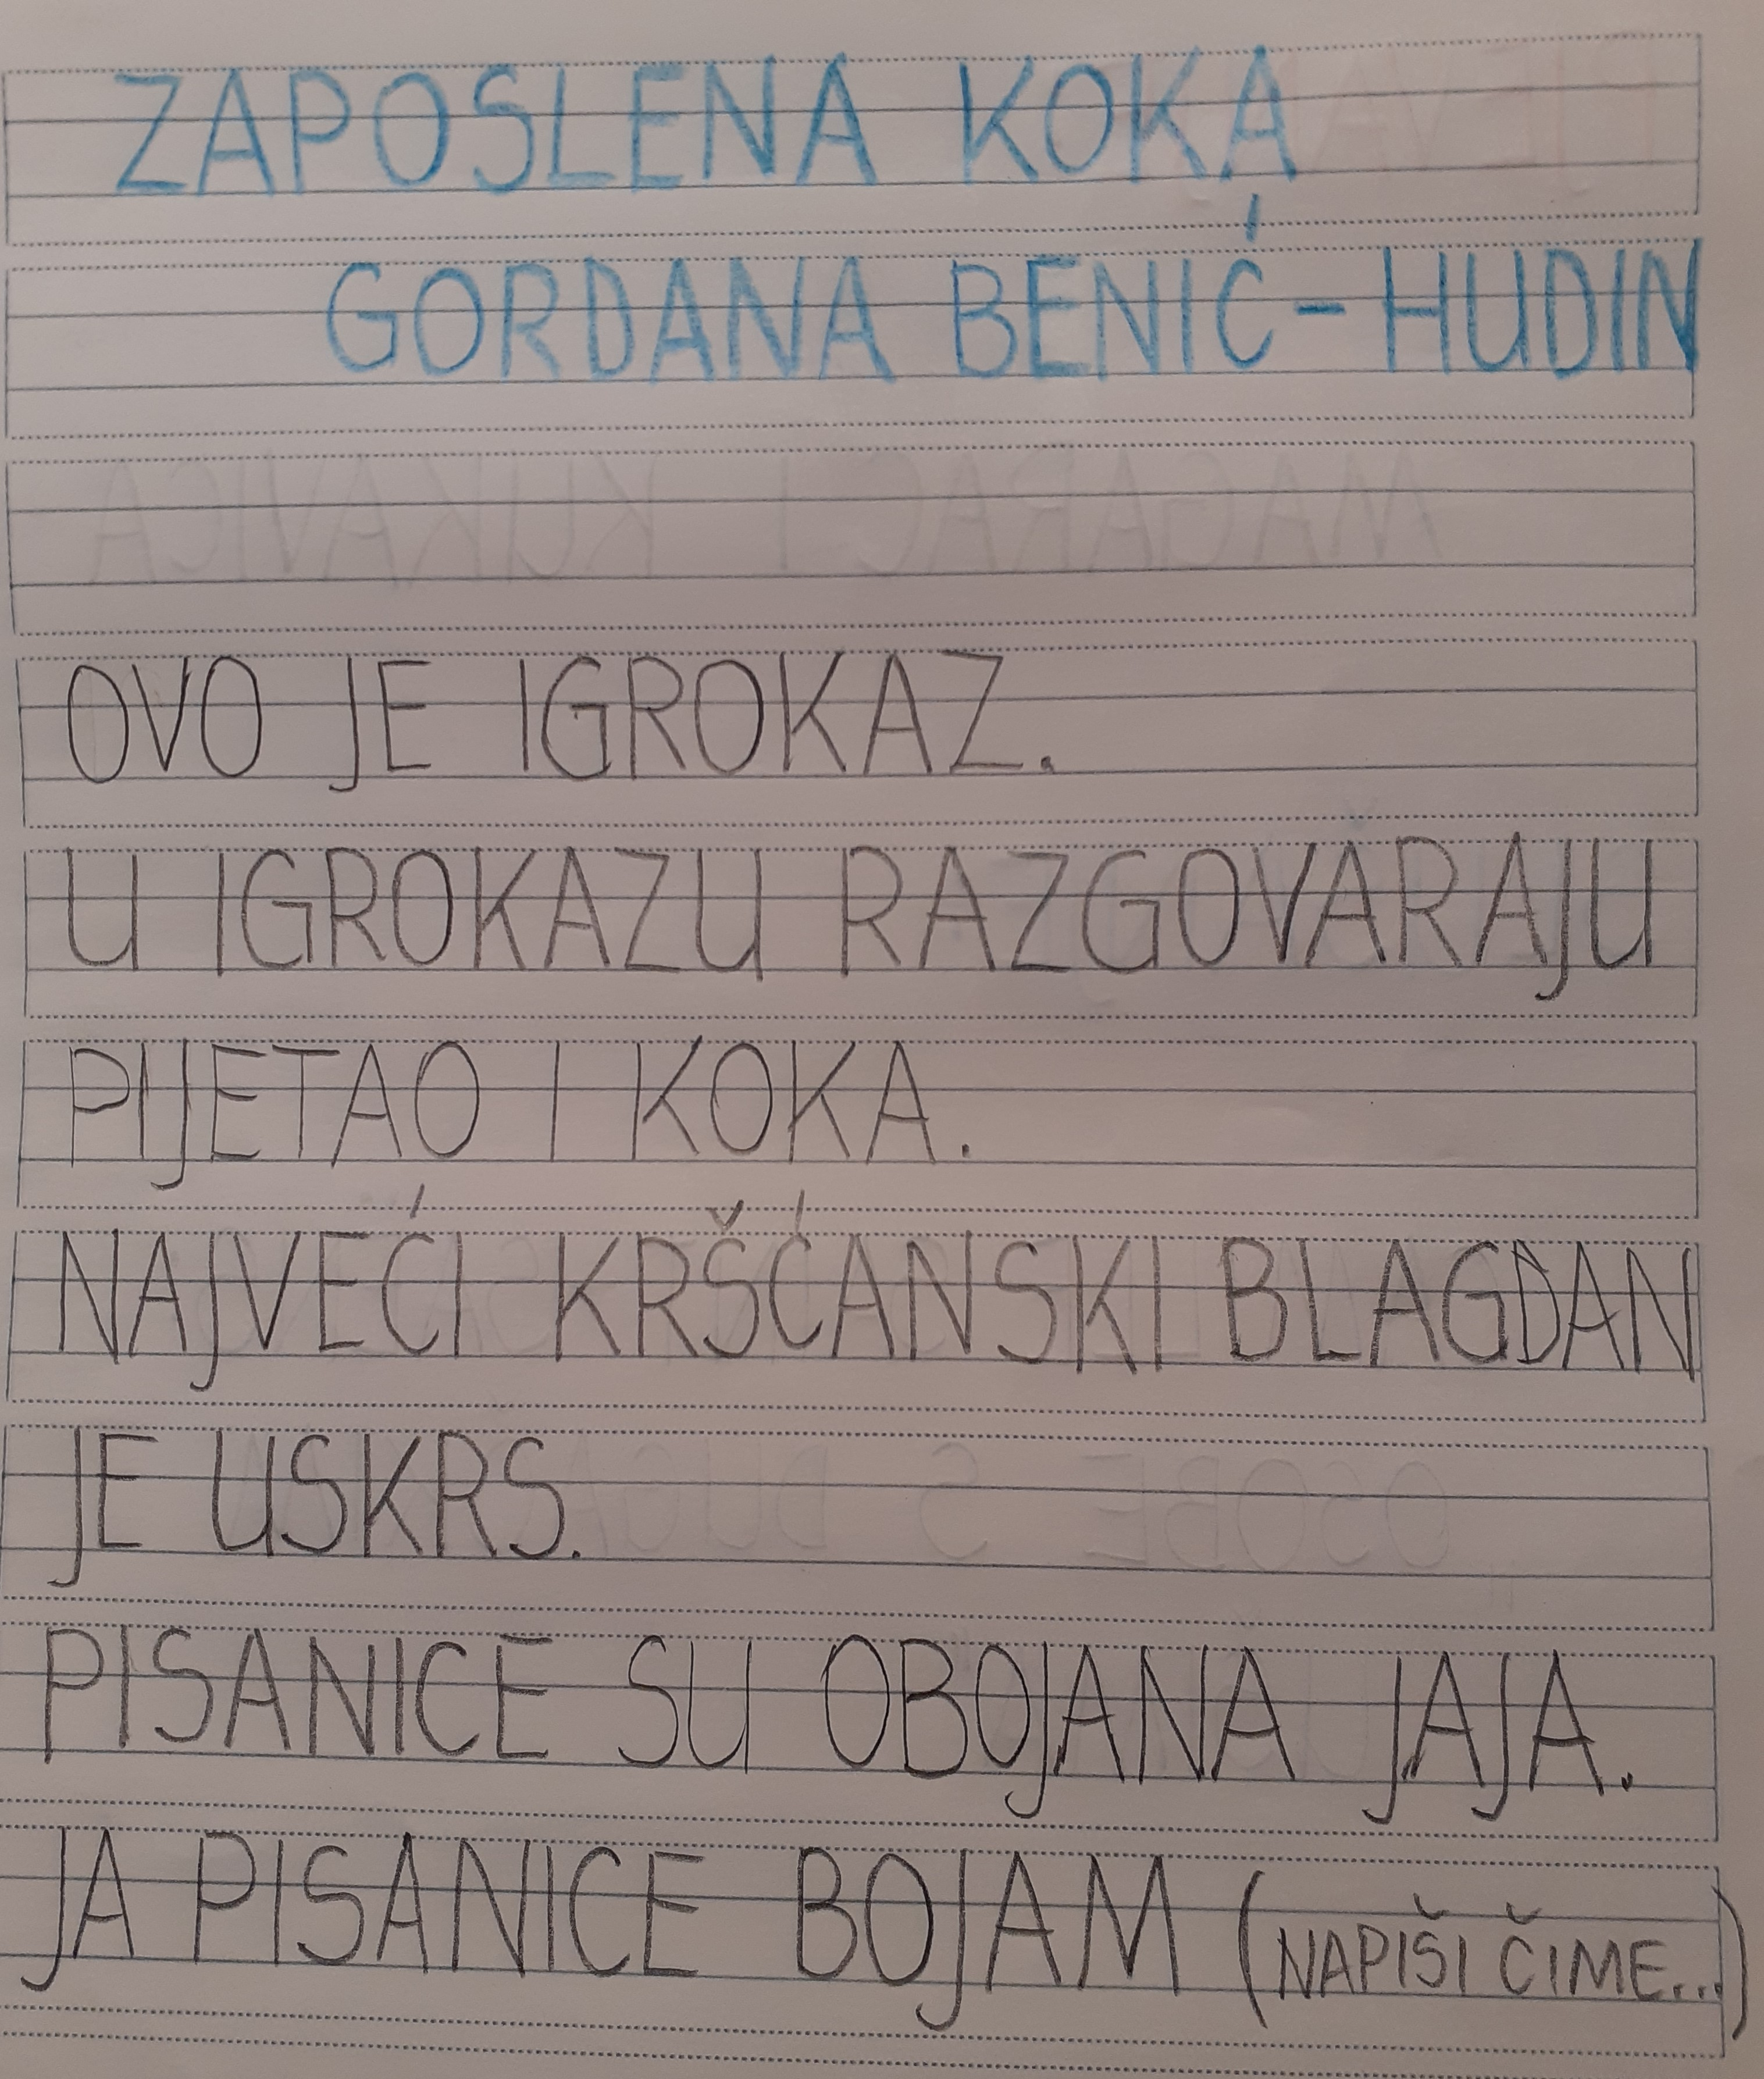 ZAPOSLENA KOKA
GORDANA BENIĆ-HUDIN
OVO JE IGROKAZ.
U IGROKAZU RAZGOVARAJU
PIJETAO I KOKA.
NAJVEĆI KRŠĆANSKI BLAGDAN
JE USKRS.
PISANICE SU OBOJANA JAJA.
JA PISANICE BOJAM (NAPIŠI ČIME...)